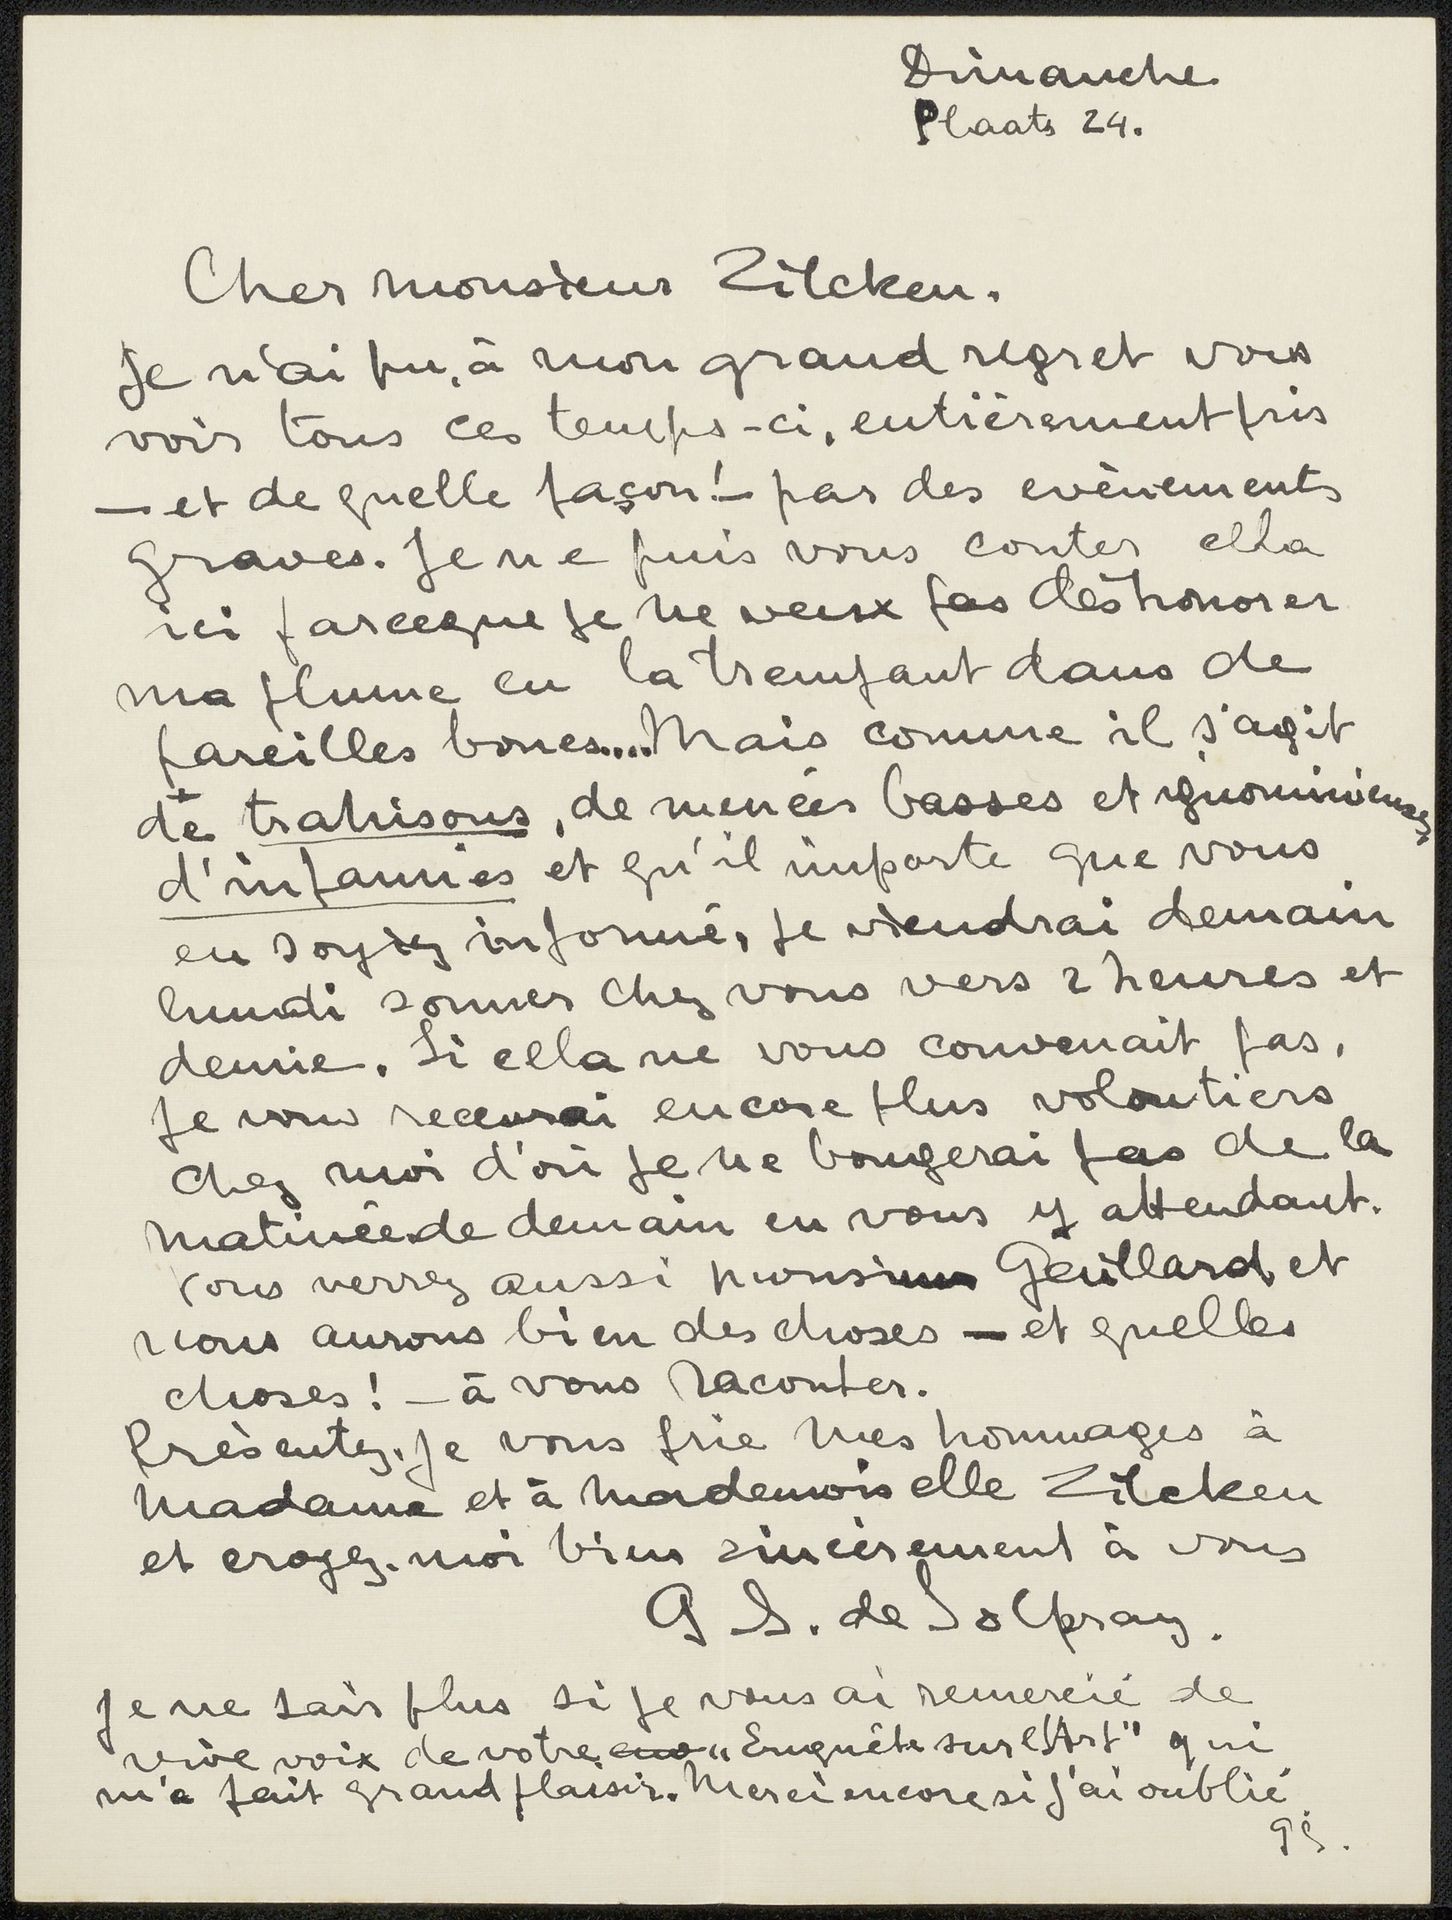 Dimanche.
Plaats 24.
Cher monsieur Zilcken.
Je n'ai pu, à mon grand regret vous
voir tous ces temps-ci, entièrement pris
— et de quelle façon! — par des evènements
graves. Je ne puis vous conter cela
ici parceque je ne veux pas déshonorer
ma plume en la trempant dans de
pareilles boues.... Mais comme il s'agit
de trahisons, de menées basses et ignominieuses
d'infamies et qu'il importe que vous
en soyiez informé, je viendrai demain
lundi sonner chez vous vers 2 heures et
demie. Si cela ne vous convenait pas,
je vous recevrai encore plus volontiers
chez moi d'où je ne bougerai pas de la
matinée de demain en vous y attendant.
Vous verrez aussi monsieur Gaillard et
nous aurons bien des choses — et quelles
choses! — à vous raconter.
Présentez, je vous prie mes hommages à
Madame et à Mademoiselle Zilcken
et croyez-moi bien sincèrement à vous
G S. de Solpray.
Je ne sais plus si je vous ai remercié de
vive voix de votre „Enquête sur l'Art" qui
m'a fait grand plaisir. Merci encore si j'ai oublié.
GS.